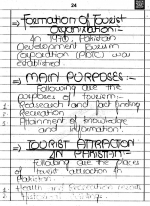 24
⇒ Formation of Tourist
Organization:-
In 1970, Pakistan
Development Tourism
Corporation (PTDC) was
established.
⇒ MAIN PURPOSES:-
Following are the
purposes of tourism:-
1. Reasearch and fact finding
2. Recreation
3. Attainment of knowledge
and information.
⇒ TOURIST ATTRACTION
IN PAKISTAN:-
Following are the places
of tourist attraction in
Pakistan:
1. Health and Recreation resorts
2. Historical buildings